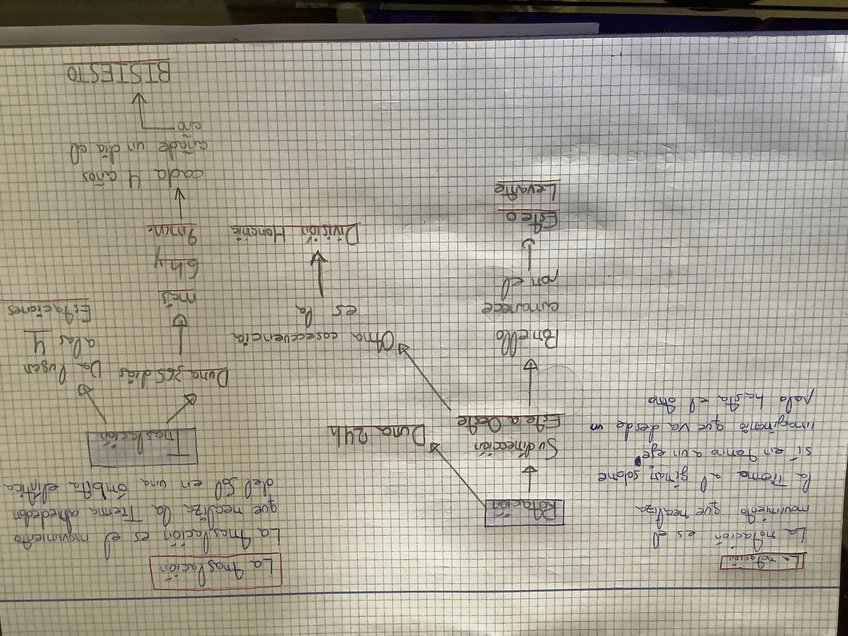 La rotación
La rotación es el
movimiento que realiza
la Tierra al girar sobre
sí en torno a un eje
imaginario que va desde un
polo hasta el otro
Rotación
Su dirección
Este a Oeste
Por ello
amanece
por el
Este o
Levante
Dura 24h
Otra cosecuencia
es la
División Horaria
La traslación
La traslación es el movimiento
que realiza la Tierra alrededor
del Sol en una órbita elíptica
Traslación
Dura 365 días
más
6h y
9min.
cada 4 años
añade un día el
año
BISIESTO
Da lugar
a las 4
Estaciones